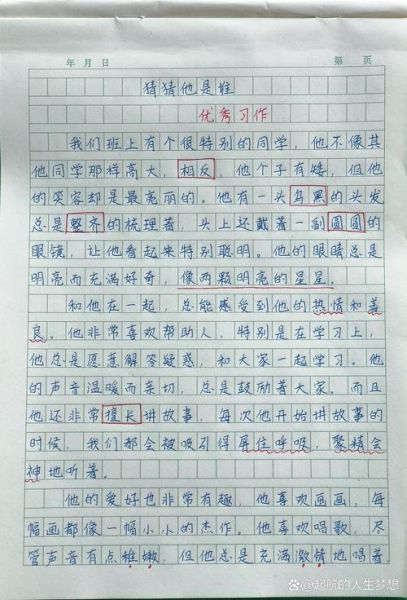 年 月 日 第 页
猜猜他是谁
优秀习作
我们班上有个很特别的同学,他不像其
他同学那样高大,相反,他个子有矮,但他
的笑容却是最亮丽的。他有一头乌黑的头发
总是整齐的梳理着,头上还戴着一副圆圆的
眼镜,让他看起来特别聪明。他的眼睛总是
明亮而充满好奇,像两颗明亮的星星。
和他在一起,总能感受到他的热情和善
良。他非常喜欢帮助人,特别是在学习上,
他总是愿意解答疑惑,和大家一起学习。他
的声音温暖而亲切,总是鼓励着大家。而且
他还非常擅长讲故事,每次他开始讲故事的
时候,我们都会被吸引得屏住呼吸,聚精会
神地听着。
他的爱好也非常有趣,他喜欢画画,每
幅画都像一幅小小的杰作。他喜欢唱歌,尽
管声音有点稚嫩,但他总是充满激情地唱着
@起航的人生梦想